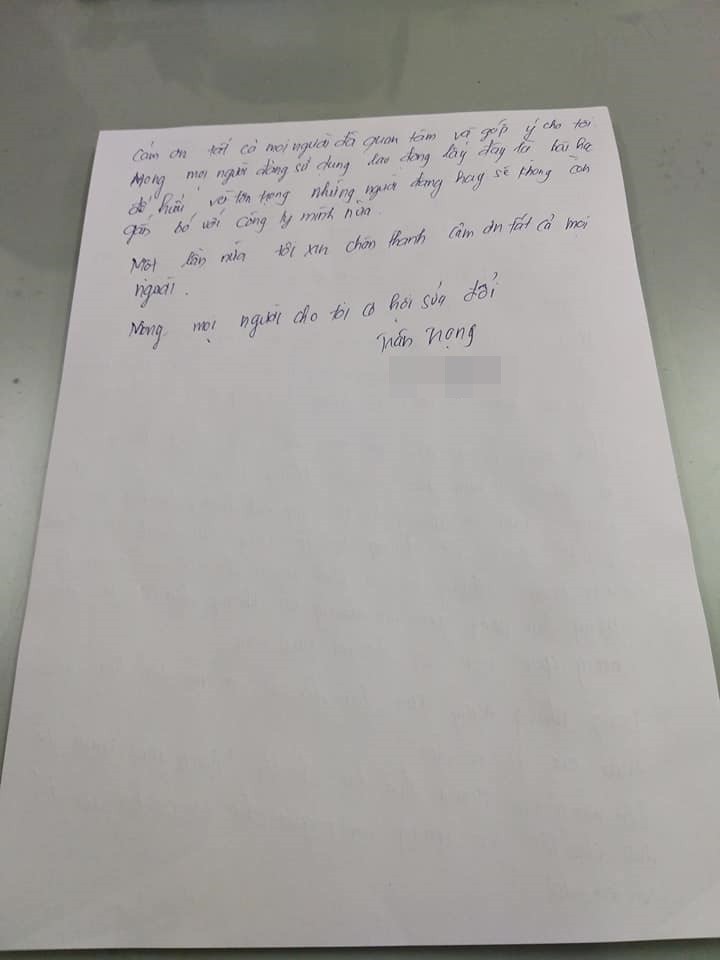 Cám ơn tất cả mọi người đã quan tâm và góp ý cho tôi
Mong mọi người đang sử dụng lao động lấy đây là bài học
để hiểu và tôn trọng những người đang hay sẽ không còn
gắn bó với công ty mình nữa.
Một lần nữa tôi xin chân thành cảm ơn tất cả mọi
người.
Mong mọi người cho tôi cơ hội sửa đổi
Trân trọng